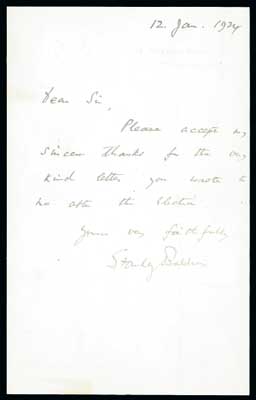 12. Jan. 1924
Dear Sir,
Please accept my
sincere thanks for the very
kind letter you wrote to
me after the election
Yours very faithfully
Stanley Baldwin